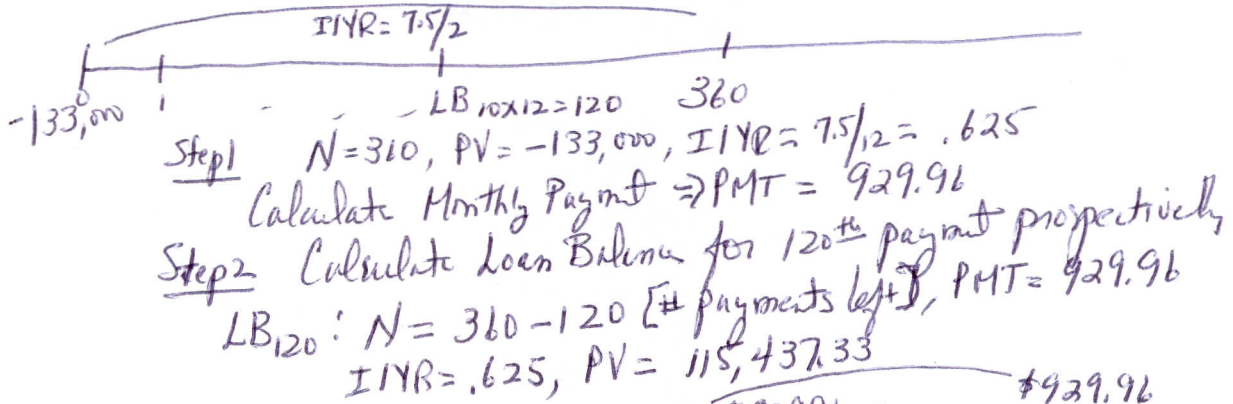 I/YR = 7.5/2
0
-133,000 1 - - LB 10x12=120 360
Step1 N=360, PV = -133,000, I/YR = 7.5/12 = .625
Calculate Monthly Paymt ⇒ PMT = 929.96
Step2 Calculate Loan Balance for 120th payment prospectively
LB120 : N = 360-120 [# payments left], PMT = 929.96
I/YR = .625, PV = 115,437.33
$929.96